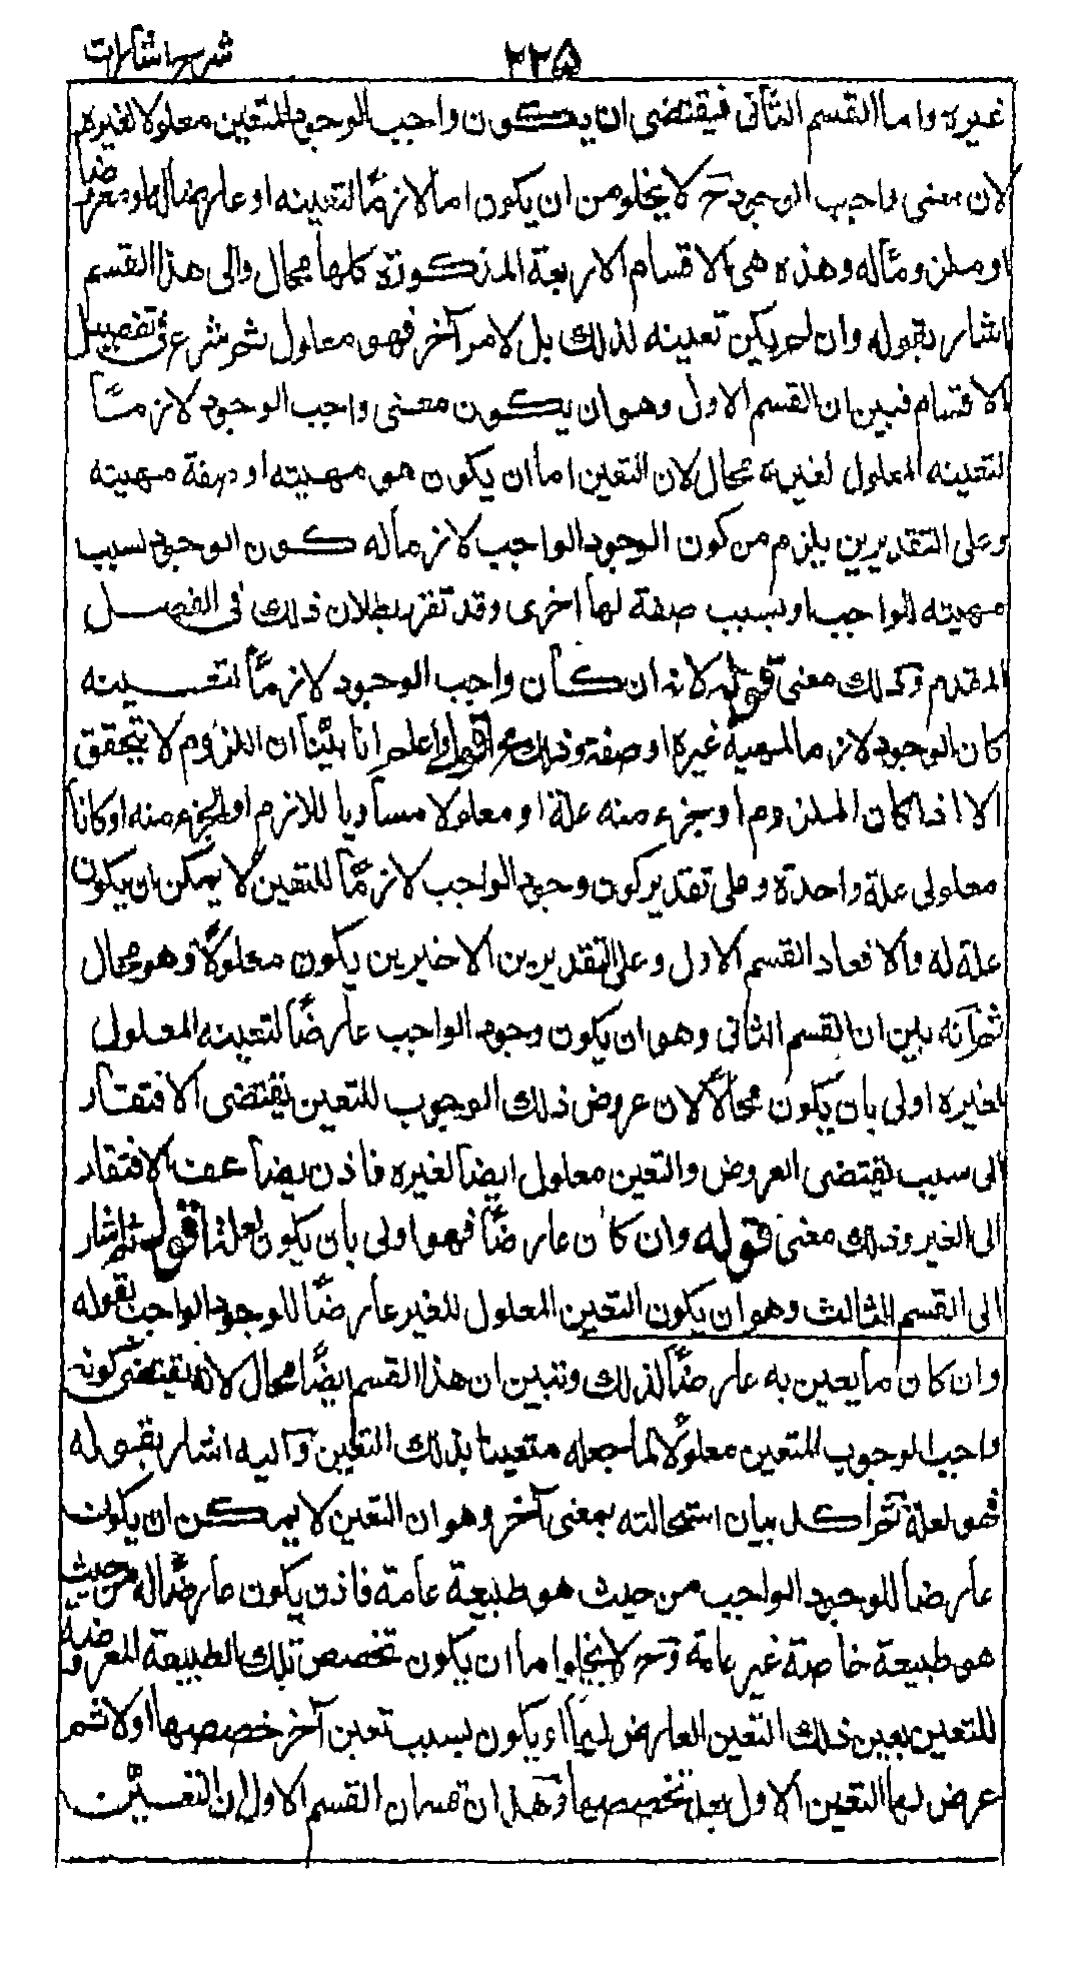 شرح اشارات
٢٢۵
غيره واما القسم الثانى فيقتضى ان يكون واجب الوجود المتعين معلولا لغيره
لان معنى واجب الوجود ح لا يخلو من ان يكون اما لازما لتعينه او عارضا له او معروضا
او ملزوما له وهذه هى الاقسام الاربعة المذكورة كلها محال والى هذا القسم
اشار بقوله وان لم يكن تعينه لذلك بل لامر آخر فهو معلول ثم شرع فى تفصيل
الاقسام فبين ان القسم الاول وهو ان يكون معنى واجب الوجود لازما
لتعينه المعلول لغيره محال لان التعين اما ان يكون هو مهيته او صفة مهيته
وعلى التقديرين يلزم من كون الوجود الواجب لازما له كون الوجود بسبب
مهيته الواجب او بسبب صفة لها اخرى وقد تقرر بطلان ذلك فى الفصل
المقدم وذلك معنى قوله لانه ان كان واجب الوجود لازما لتعينه
كان الوجود لازما لمهية غيره او صفة وذلك محال اقول واعلم انا بينا ان اللزوم لا يتحقق
الا اذا كان الملزوم او جزء منه علة او معلولا مساويا للازم او لجزء منه او كانا
معلولى علة واحدة وعلى تقدير كون وجود الواجب لازما للتعين لا يمكن ان يكون
علة له والا فعاد القسم الاول وعلى التقديرين الاخيرين يكون معلولا وهو محال
ثم انه بين ان القسم الثانى وهو ان يكون وجود الواجب عارضا لتعينه المعلول
لغيره اولى بان يكون محالا لان عروض ذلك الوجوب للتعين يقتضى الافتقار
الى سبب يقتضى العروض والتعين معلول ايضا لغيره فاذن يضاعف الافتقار
الى الغير وذلك معنى قوله وان كان عارضا فهو اولى بان يكون لعلة اقول ثم اشار
الى القسم الثالث وهو ان يكون التعين المعلول للغير عارضا للوجود الواجب بقوله
وان كان ما يعين به عارضا لذلك وتبين ان هذا القسم ايضا محال لانه يقتضى كونه
واجب الوجوب المتعين معلولا لما جعله متعينا بذلك التعين واليه اشار بقوله
فهو لعلة ثم اكد بيان استحالته بمعنى آخر وهو ان التعين لا يمكن ان يكون
عارضا للوجود الواجب من حيث هو طبيعة عامة فاذن يكون عارضا له من حيث
هو طبيعة خاصة غير عامة وح لا يخلو اما ان يكون تخصص تلك الطبيعة المعروضة
للتعين بعين ذلك التعين العارض لها او يكون بسبب تعين آخر خصصها اولا ثم
عرض لها التعين الاول بعد تخصصها وهذان قسمان القسم الاول ان التعين